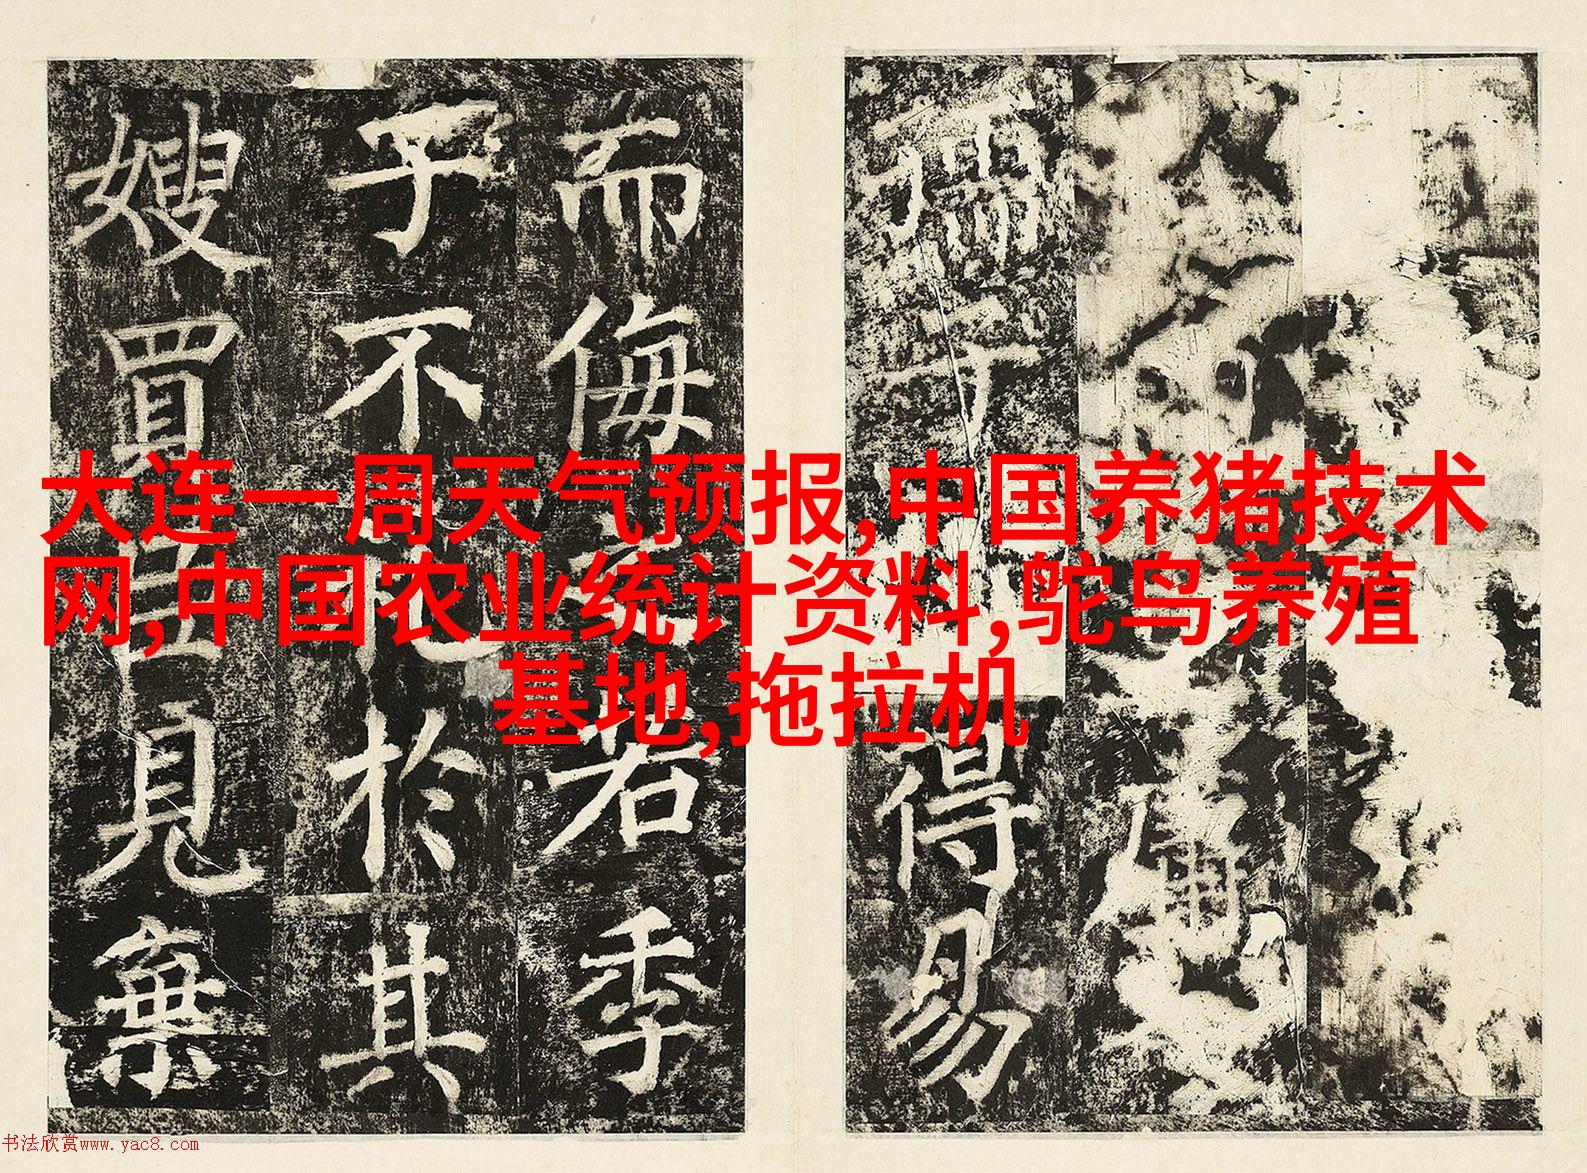 大连一周天气预报,中国养猪技术
网,中国农业统计资料,鸵鸟养殖
基地,拖拉机
得易
而侮若季
子不於其
嫂買臣見棄
书法欣赏www.yac8.com